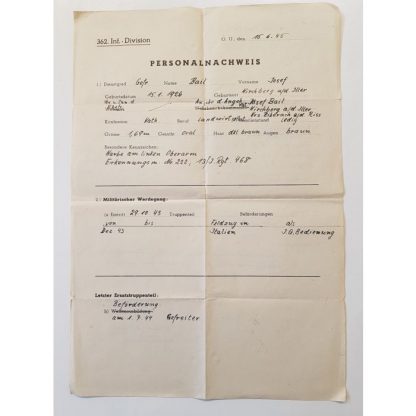 362. Inf.-Division O. U., den 15.6.45
PERSONALNACHWEIS
1.) Dienstgrad Gefr. Name Bail Vorname Josef
Geburtsdatum 15.1.1926 Geburtsort Kirchberg a/d. Iller
Josef Bail
Kirchberg a/d Iller
Krs. Biberach a/d Riss
Konfession Kath Beruf Landwirt ledig
Grösse 1,69m Gestalt oval Haar dkl. braun Augen braun
Besondere Kennzeichen:
Narbe am linken Oberarm
Erkennungsm. No 222, 13/J. Rgt. 468
2.) Militärischer Werdegang:
a) Eintritt 29.10.43 Truppenteil Beförderungen
von bis Feldzug in als
Dez 43 Italien J.G. Bedienung
Letzter Ersatztruppenteil:
Beförderung
b) Waffenausbildung
am 1.7.44 Gefreiter